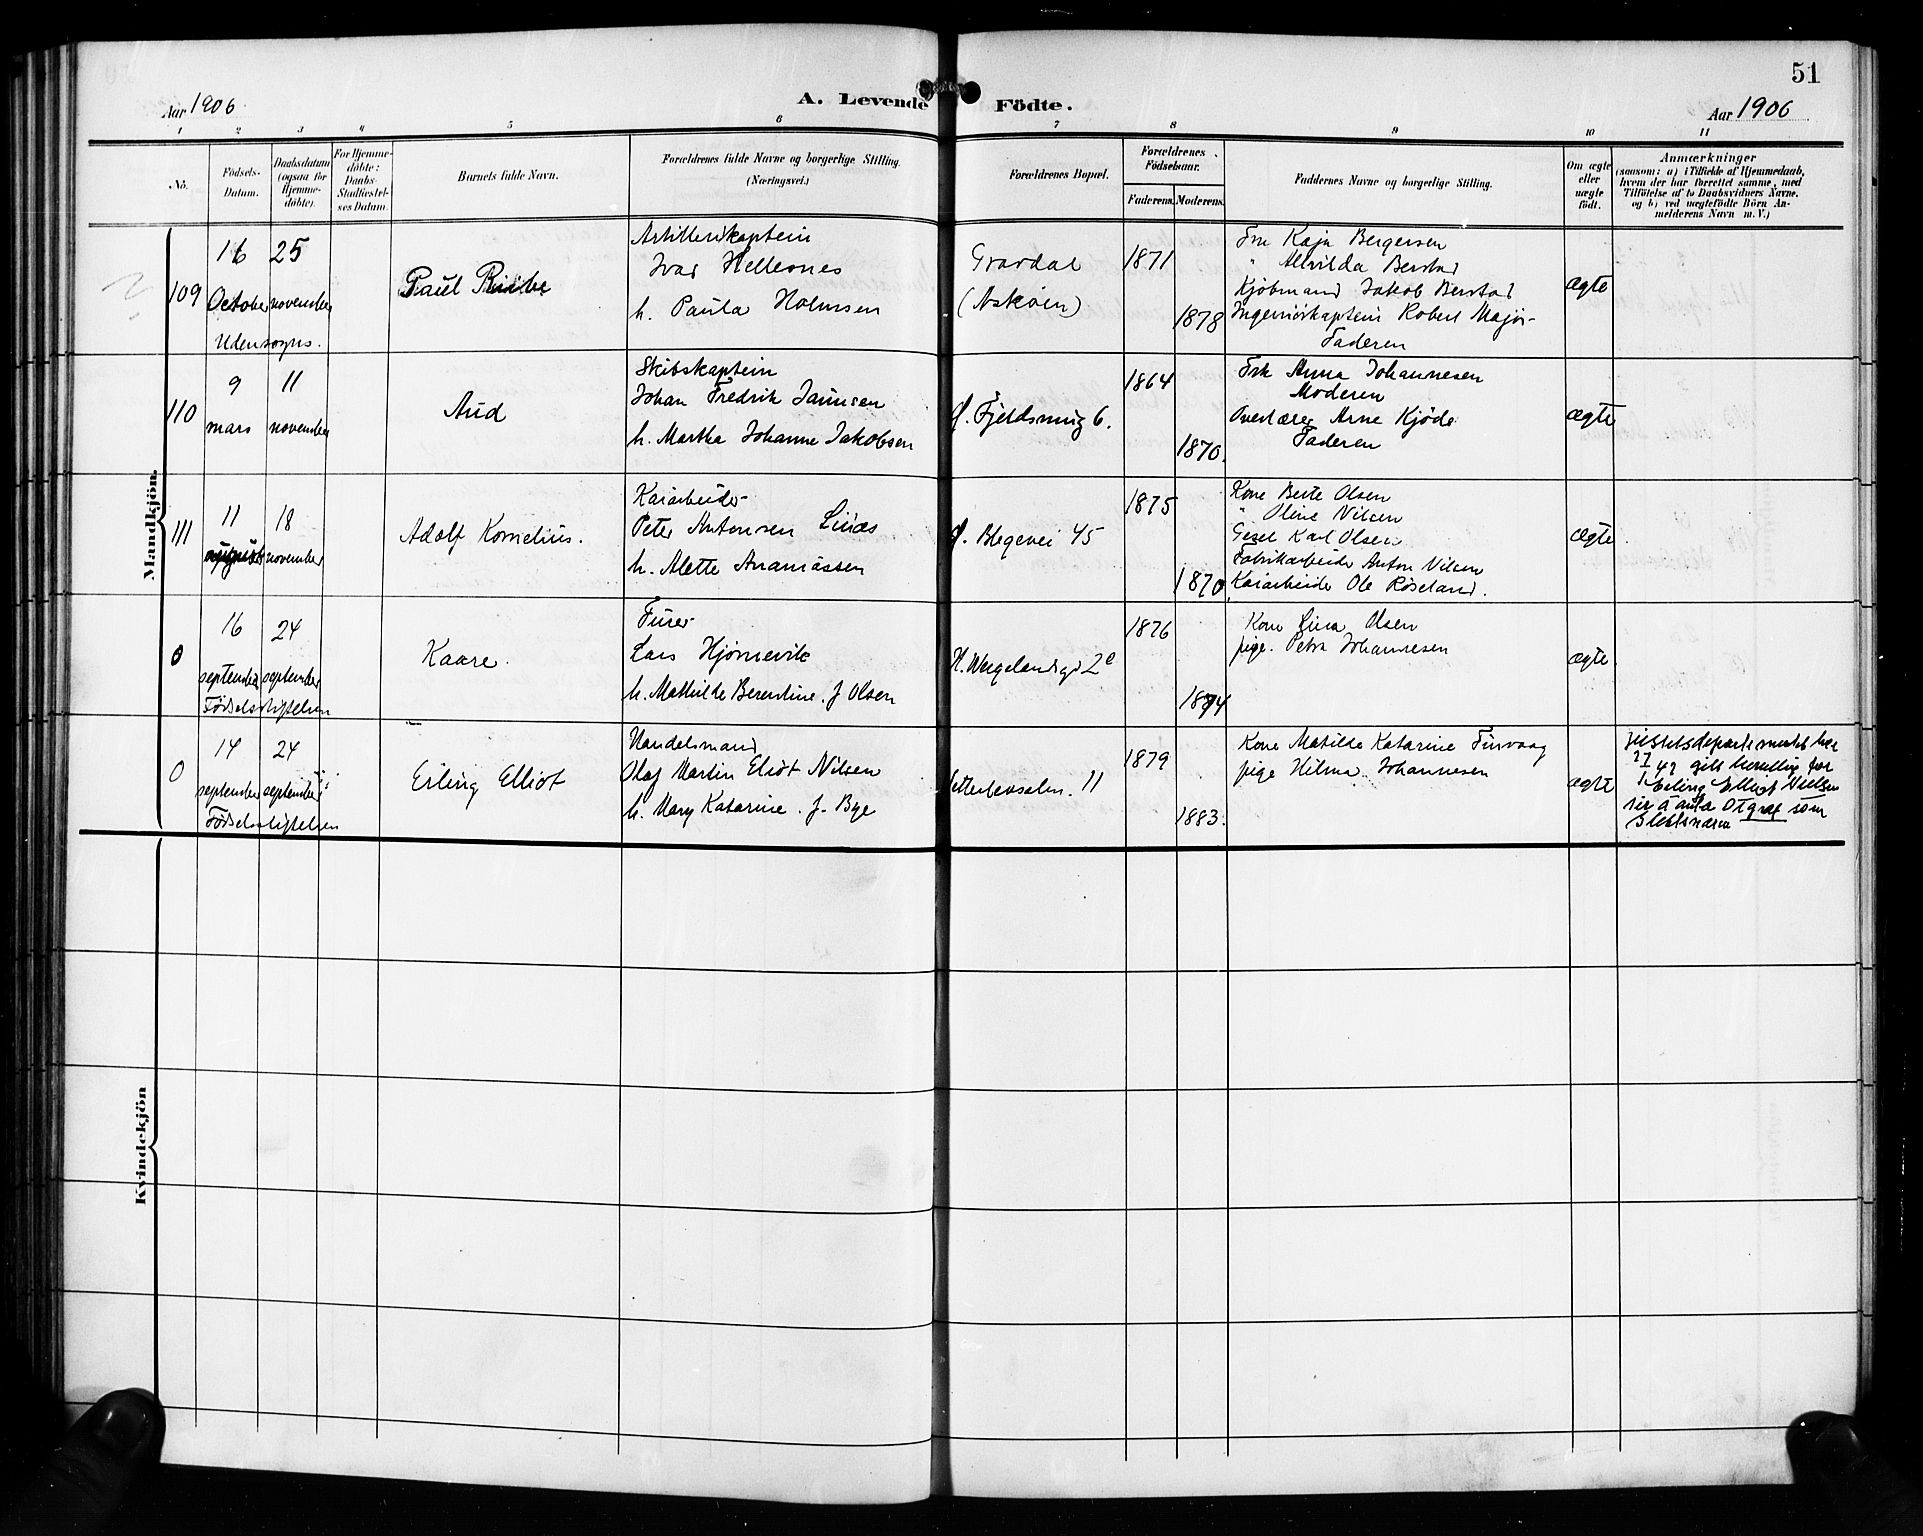 51
Aar 1906
A. Levende Födte.
Aar 1906
1 2 3 4 5 6 7 8 9 10 11
No.
Födsels-
Datum.
Daabsdatum
(ogsaa for
Hjemme-
döbte).
For Hjemme-
döbte:
Daabs-
Stadfæstel-
ses Datum.
Barnets fulde Navn.
Forældrenes fulde Navne og borgerlige Stilling.
(Næringsvei.)
Forældrenes Bopæl.
Forældrenes
Födselsaar.
Faderens. Moderens.
Faddernes Navne og borgerlige Stilling.
Om ægte
eller
uægte
födt.
Anmærkninger
(saasom: a) i Tilfælde af Hjemmedaab,
hvem der har forrettet samme, med
Tilföielse af to Daabsvidners Navne.
og b) ved uægtefödte Börn An-
melderens Navn m. V.)
Mandkjön.
109
16 October
Udensogns.
25 november
Paul
Artillerikaptein
Ivar Hellesnes
h. Paula Holmsen
Gravdal
(Askøen)
1871
1878
Fru Kaja Bergersen
" Alvilda Berstad
Kjøbmand Jakob Berstad
Ingeniørkaptein Robert Major
Faderen
ægte
110
9 mars
11 november
Aud
Skibskaptein
Johan Fredrik Jannsen
h. Martha Johanne Jakobsen
Fjeldsmug 6.
1864
1870.
Frk Anna Johannesen
Moderen
Overlærer Arne Kjöde
Faderen
ægte
111
11 august
18 november
Adolf Kornelius.
Kaiarbeider
Peter Antonsen Linås
h. Alette Ananiassen
Blegevei 45
1875
1870
Kone Berte Olsen
" Oline Nilsen
Gesel Karl Olsen
Fabrikarbeider Anton Nilsen
Kaiarbeider Ole Røseland.
ægte
0
16 september
Fødselsstiftelsen
24 september
Kaare.
Furer
Lars Hjørnevik
h. Mathilde Berentine f. Olsen
H. Wergelandsgd 2c
1876
1874
Kone Lina Olsen
pige. Petra Johannesen
ægte
0
14 september
Fødselsstiftelsen
24 september
Erling Elliot
Handelsmand
Olaf Martin Eliot Nilsen
h. Mary Katarine. f. Bye
11
1879
1883.
Kone Matilde Katarine Finvaag
pige Hilma Johannesen
ægte
Justisdepartementet har
gitt bevilling for
Erling Elliot Nielsen
til å anta som
slektsnavn
Kvindekjön